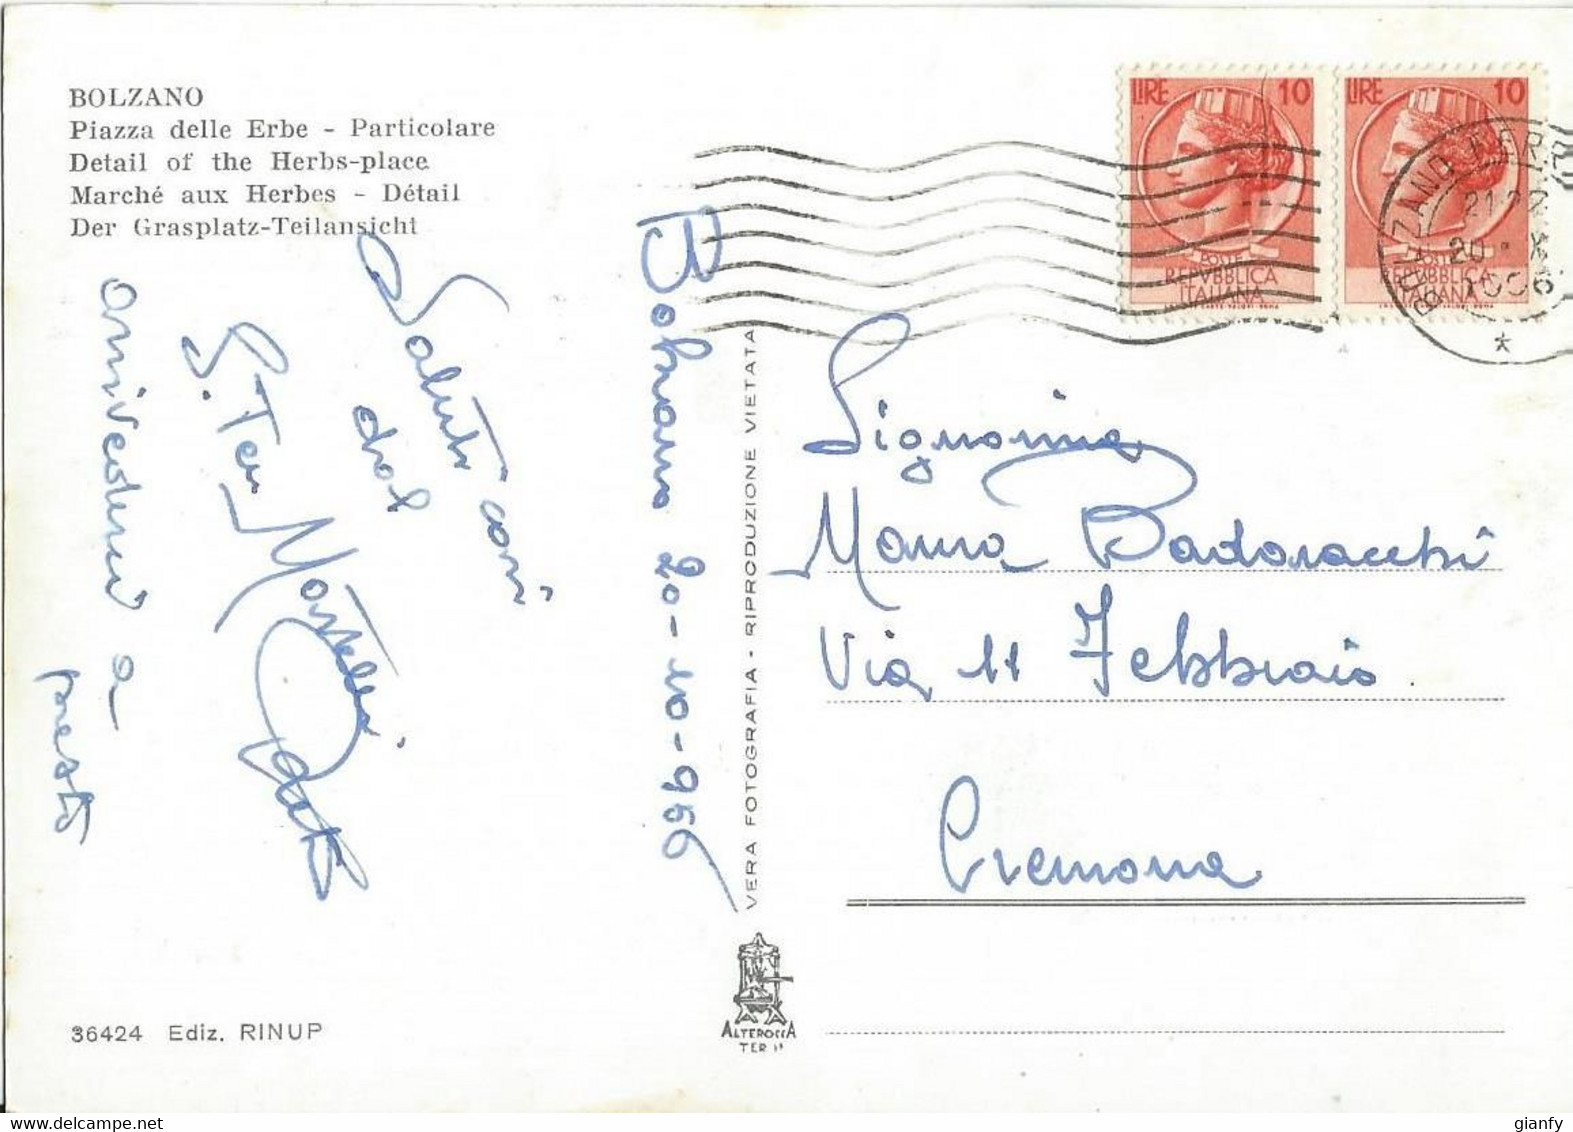 BOLZANO
Piazza delle Erbe - Particolare
Detail of the Herbs-place
Marché aux Herbes - Détail
Der Grasplatz-Teilansicht
Saluti cari
dal
S. Ten.
arrivederci a
presto
Bolzano 20-10-956
VERA FOTOGRAFIA - RIPRODUZIONE VIETATA
LIRE 10
POSTE
REPVBBLICA
ITALIANA
LIRE 10
POSTE
REPVBBLICA
ITALIANA
BOLZANO FERR
Signorina
Maura Badaracchi
Via 11 Febbraio
Cremona
36424 Ediz. RINUP
ALTEROCCA
TERNI
gianfy